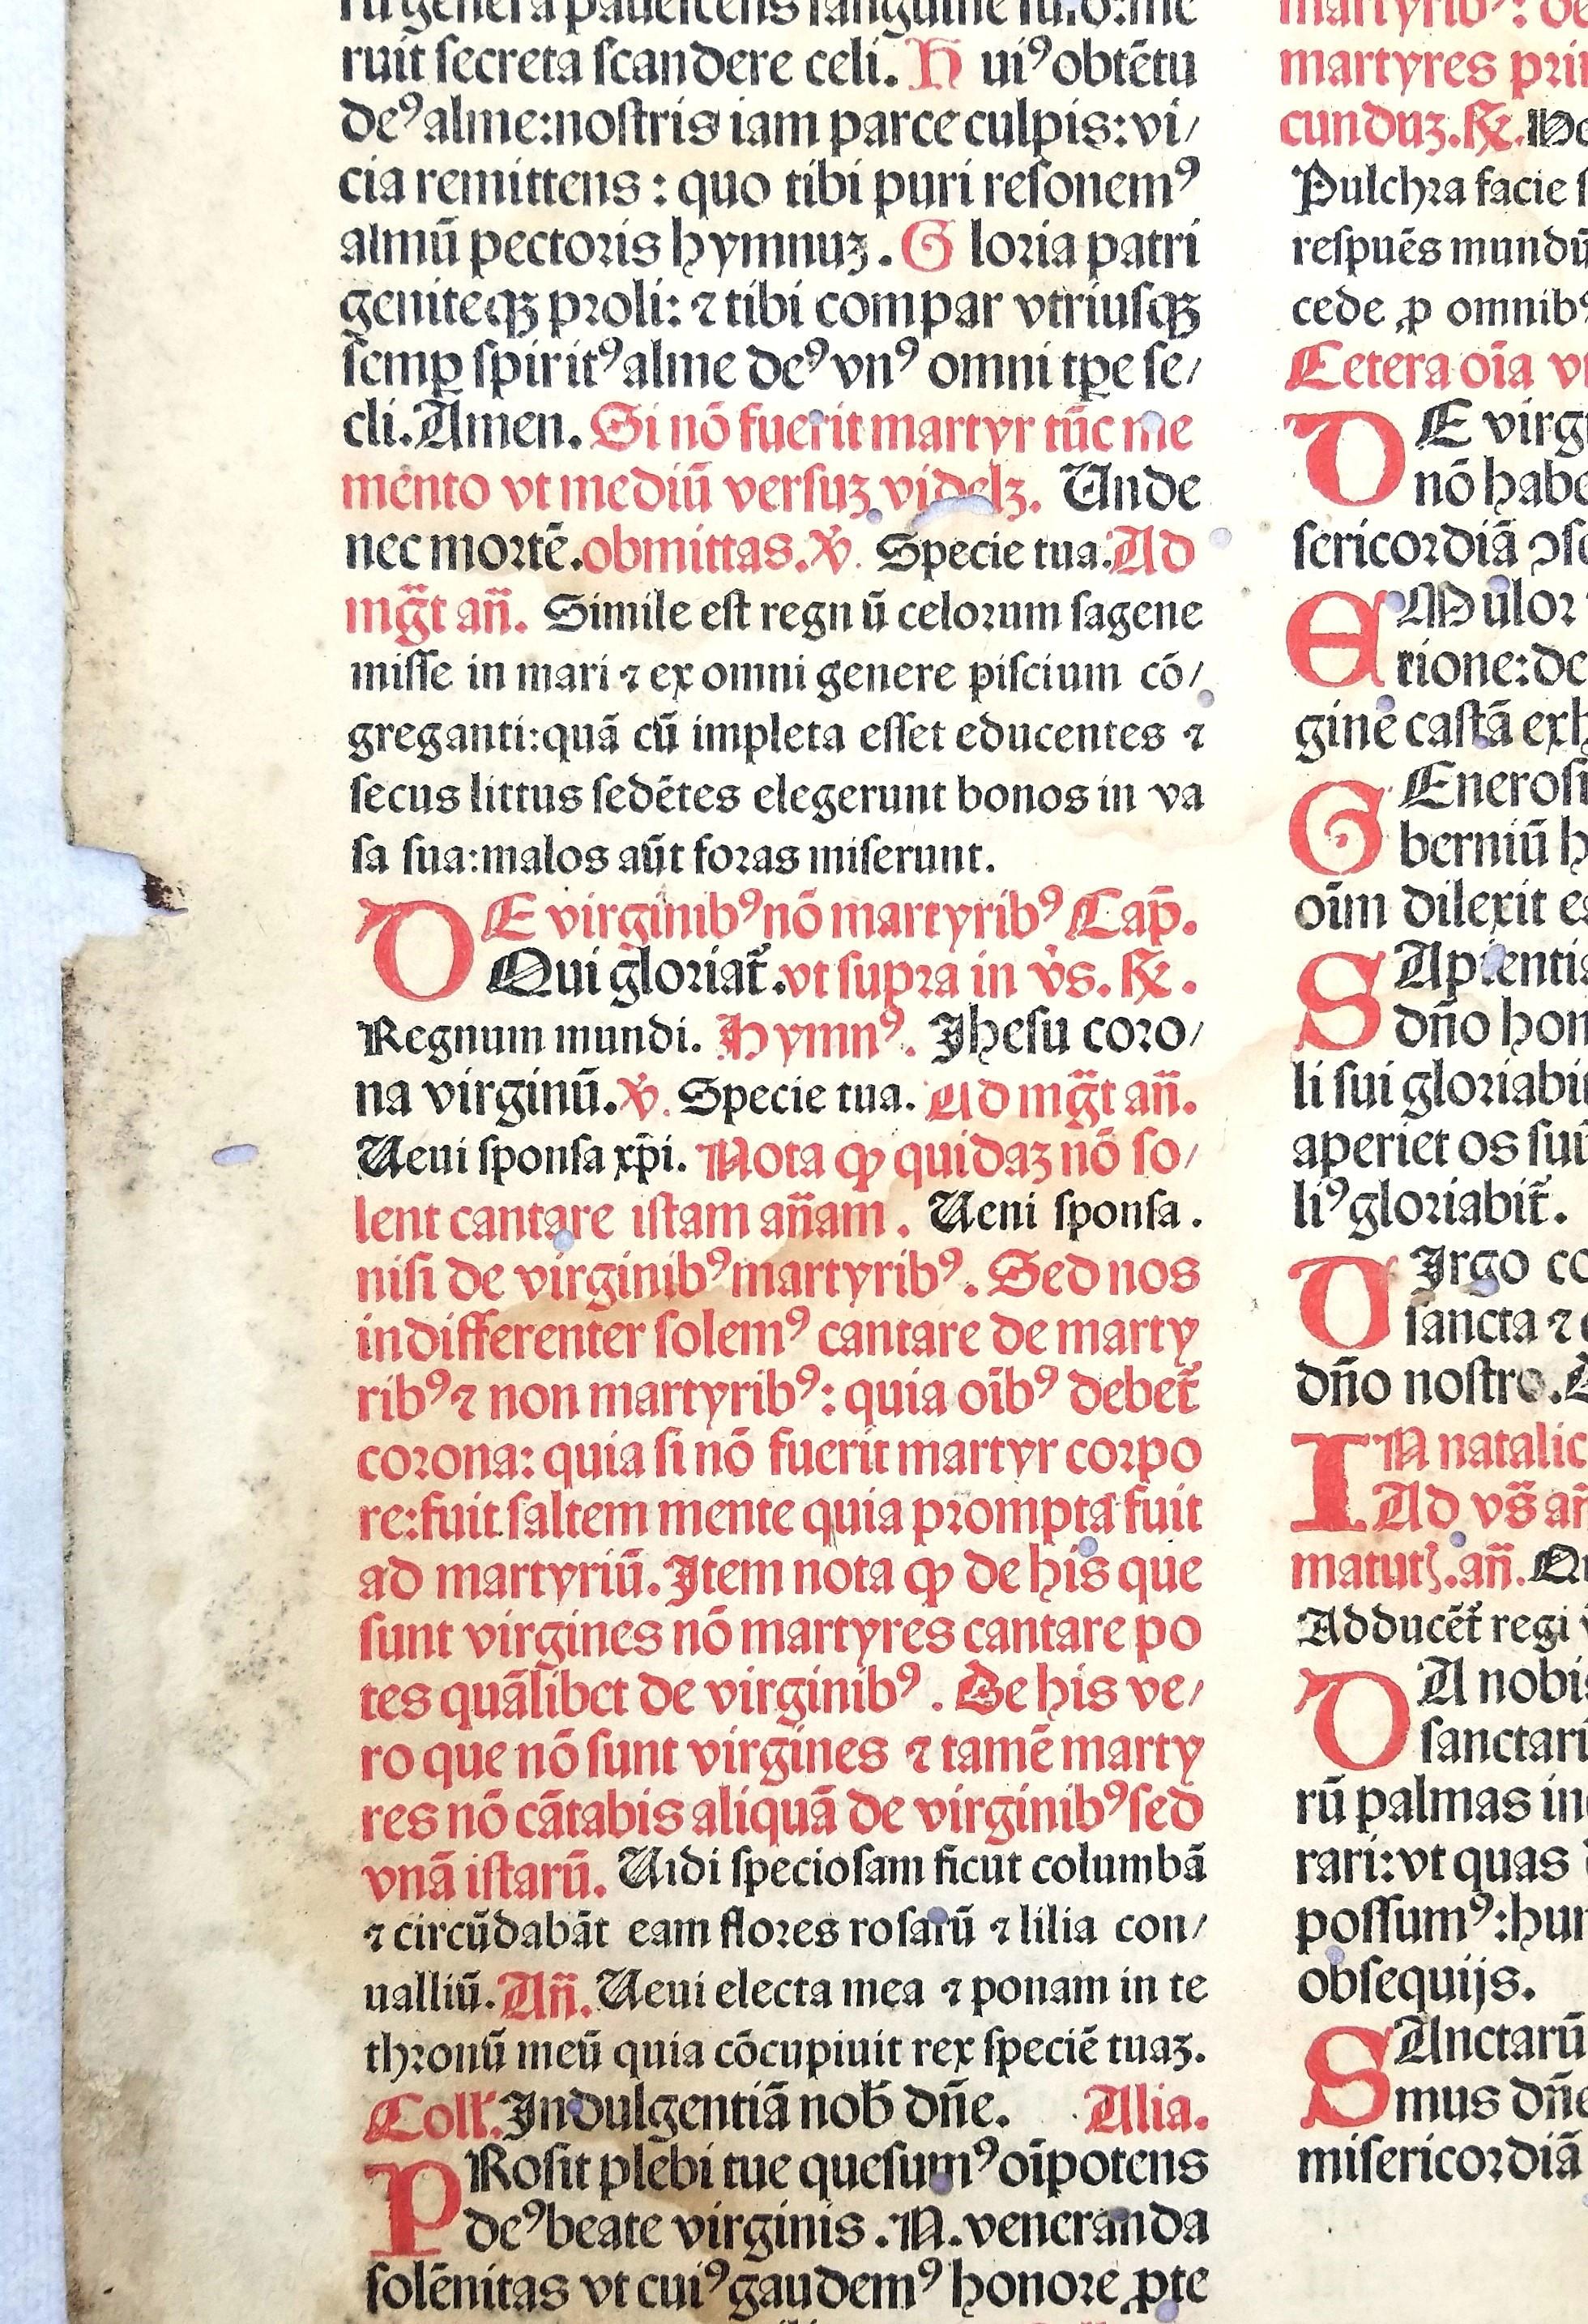 ruit secreta scandere celi. H uiꝰ obtētu
deꝰ alme: nostris iam parce culpis: vi/
cia remittens: quo tibi puri resonemꝰ
almū pectoris hymnuꝫ. G loria patri
geniteqꝫ proli: ⁊ tibi compar vtriusqꝫ
semꝑ spiritꝰ alme deꝰ vnꝰ omni tꝑe se/
cli. Amen. Si nō fuerit martyr tūc me
mento vt mediū versuꝫ videlꝫ. Unde
nec mortē. obmittas. ℣. Specie tua. Ad
mg̃t añ. Simile est regnū celorum sagene
misse in mari ⁊ ex omni genere piscium cō/
greganti: quā cū impleta esset educentes ⁊
secus littus sedētes elegerunt bonos in va
sa sua: malos aūt foras miserunt.
DE virginibꝰ nō martyribꝰ Cap̄.
Qui gloriat̃. vt supra in v̄s. ℟.
Regnum mundi. Hymnꝰ. Jhesu coro/
na virginū. ℣. Specie tua. Ad mg̃t añ.
Ueni sponsa xp̄i. Nota ꝙ quidaꝫ nō so/
lent cantare istam añam. Ueni sponsa.
nisi de virginibꝰ martyribꝰ. Sed nos
indifferenter solemꝰ cantare de marty
ribꝰ ⁊ non martyribꝰ: quia oībꝰ debet̃
corona: quia si nō fuerit martyr corpo
re: fuit saltem mente quia prompta fuit
ad martyriū. Jtem nota ꝙ de his que
sunt virgines nō martyres cantare po
tes quālibet de virginibꝰ. De his ve/
ro que nō sunt virgines ⁊ tamē marty
res nō cātabis aliquā de virginibꝰ sed
vnā istarū. Uidi speciosam sicut columbā
⁊ circūdabāt eam flores rosarū ⁊ lilia con/
ualliū. Añ. Ueni electa mea ⁊ ponam in te
thronū meū quia cōcupiuit rex speciē tuaꝫ.
Coll'. Jndulgentiā nob̄ dñe. Alia.
PRosit plebi tue quesumꝰ oīpotens
deꝰ beate virginis. N. veneranda
solēnitas vt cuiꝰ gaudemꝰ honore ꝓte
martyres
cunduꝫ. ℟.
Pulchra facie
respuēs mundū
cede ꝓ omnibꝰ
Cetera oīa
DE
nō
sericordiā
EMulor
gine castā
GEnerosi
berniū
oīm dilexit
SApientia
dño
li sui
aperiet os
liꝰ gloriabit̃.
VIrgo
sancta ⁊
dño nostro.
IN
Ad vs̄ añ
matut̃. añ.
Adducēt̃ regi
DA nobis
rū palmas
rari: vt quas
possumꝰ:
obsequijs.
SAnctarū
mus dñe
misericordiā